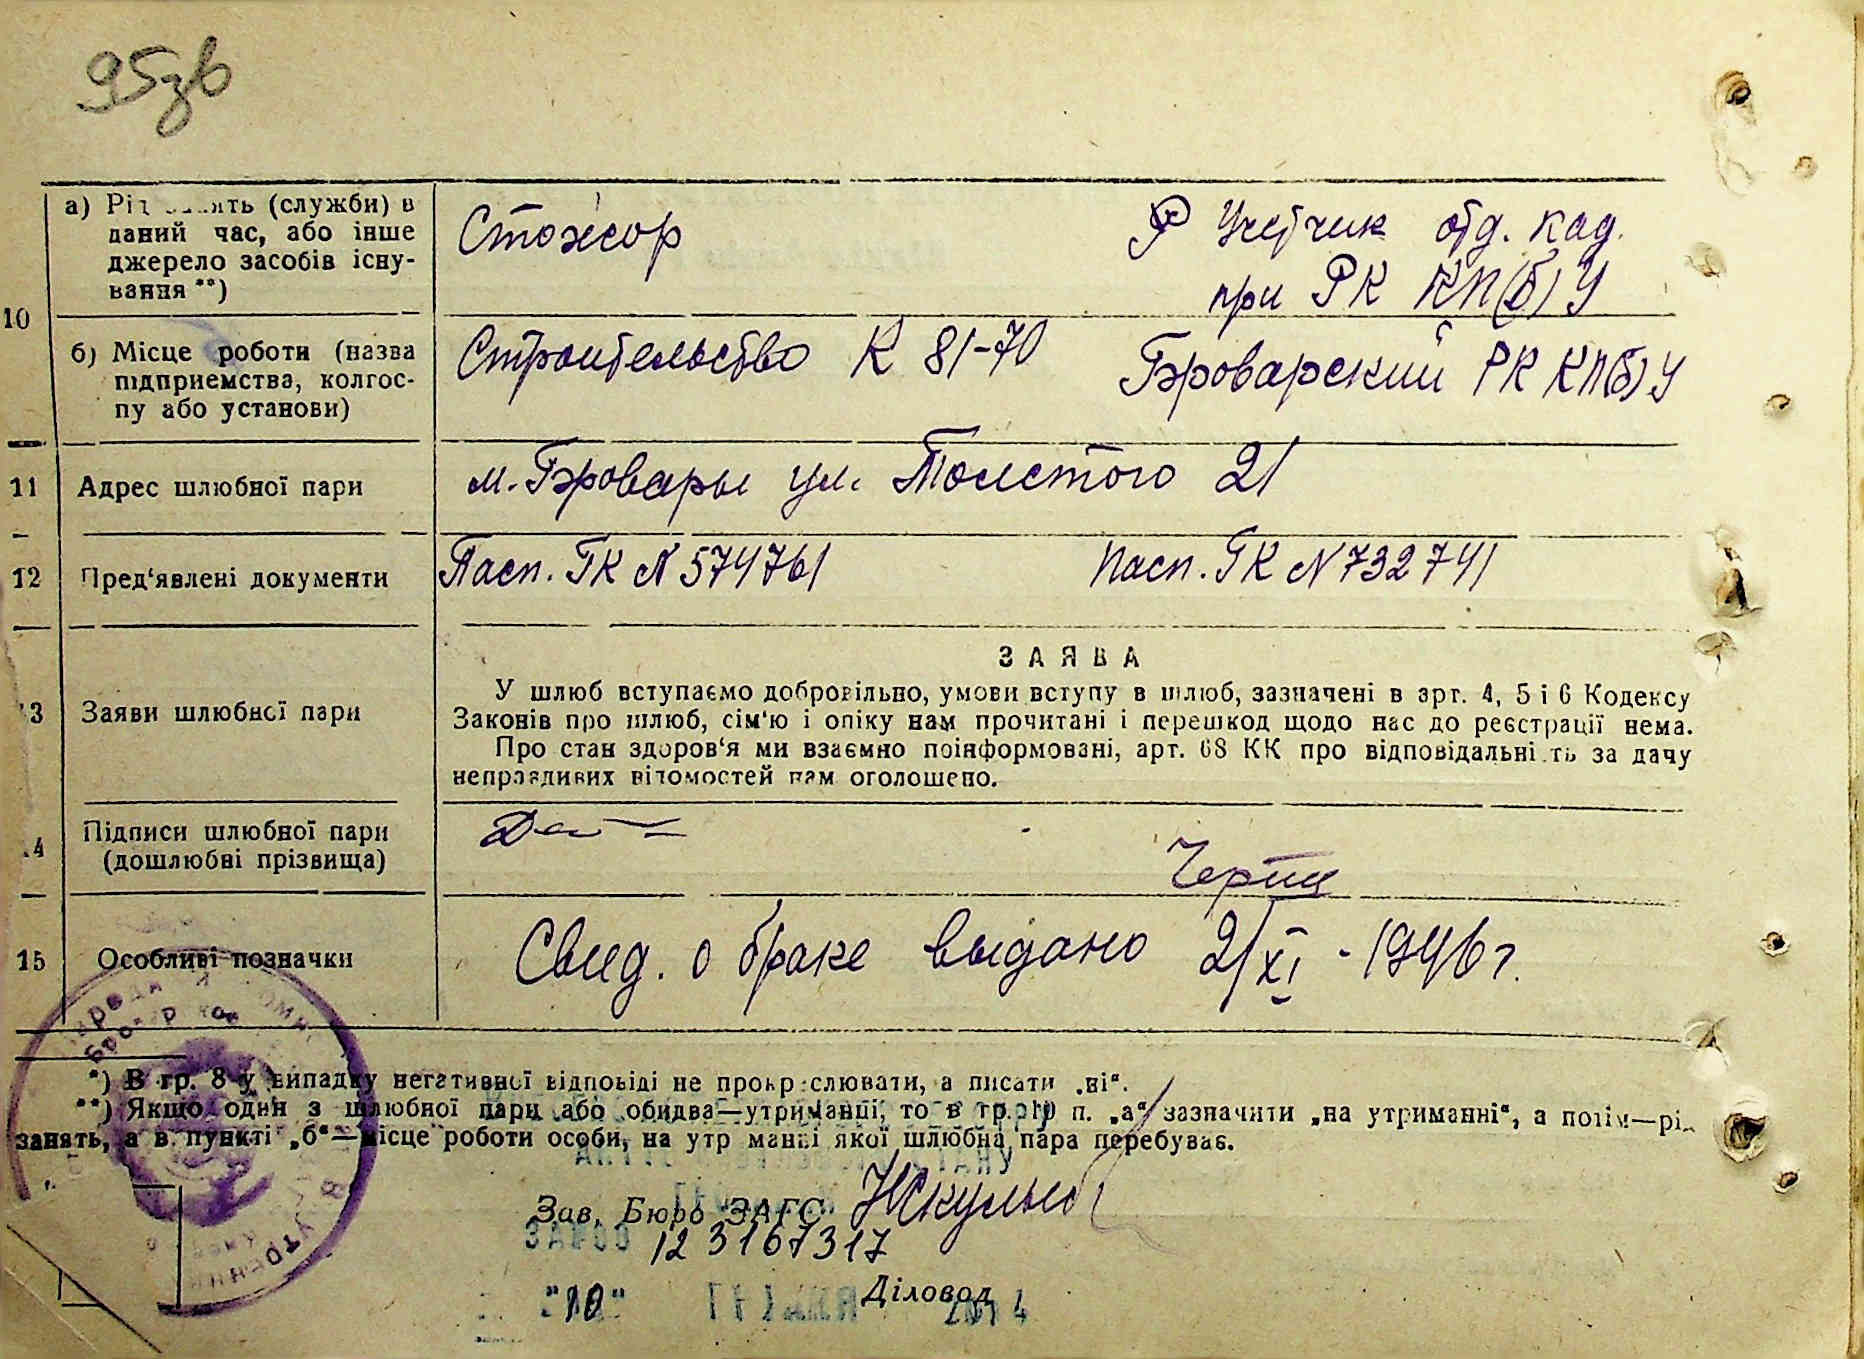 95зв
а) Рід занять (служби) в
даний час, або інше
джерело засобів існу-
вання **)
Стожор
Учетчик отд. кад.
при РК КП(б)У
10
б) Місце роботи (назва
підприємства, колгос-
пу або установи)
Строительство К 81-70
Броварский РК КП(б)У
11 Адрес шлюбної пари
м. Бровары ул. Толстого 21
12 Пред'явлені документи
Пасп. ГК N 574761
Пасп. ГК N 732741
13 Заяви шлюбної пари
ЗАЯВА
У шлюб вступаємо добровільно, умови вступу в шлюб, зазначені в арт. 4, 5 і 6 Кодексу
Законів про шлюб, сім'ю і опіку нам прочитані і перешкод щодо нас до реєстрації нема.
Про стан здоров'я ми взаємно поінформовані, арт. 68 КК про відповідальність за дачу
неправдивих відомостей нам оголошено.
14 Підписи шлюбної пари
(дошлюбні прізвища)
15 Особливі позначки
Свид. о браке выдано 2/XI - 1946 г.
*) В гр. 8 у випадку негативної відповіді не прокреслювати, а писати „ні".
**) Якщо один з шлюбної пари або обидва—утриманці, то в гр. 10 п. „а" зазначити „на утриманні", а потім—рід
занять, а в пункті „б"—місце роботи особи, на утриманні якої шлюбна пара перебуває.
Зав. Бюро ЗАГС
12 3167317
Діловод
"10"